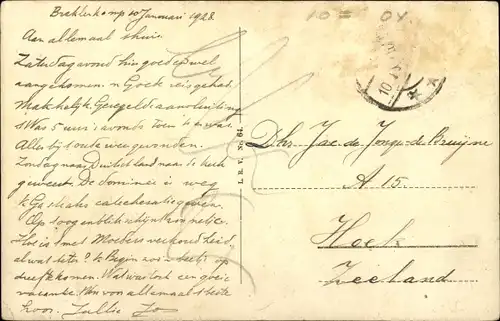 10 = OY
Brekkenkamp 10 Januari 1928.
Aan allemaal thuis
Zaterdagavond hier goed en wel
aangekomen. 'n Goede reis gehad.
Makkelijk. Geregeld aansluiting
't Was 5 uur 's avonds toen 'k er was.
Alles bij 't oude weer gevonden.
Zondag naar Duitschland naar de kerk
geweest. De dominee is weg
'k Ga straks catechesatie geven.
Op 't oogenblik schijnt zonnetje.
Hoe is 't met Moeders verkoudheid,
al wat beter? 'k Begin zoo
op
dreef te komen. Wat was toch een goeie
vacantie. Wen van allemaal 't beste
hoor. Jullie Jo
L. R. V. No. 64.
10
Dhr. Jac. de Jonge-de Bruijne
A 15.
Hoek
Zeeland